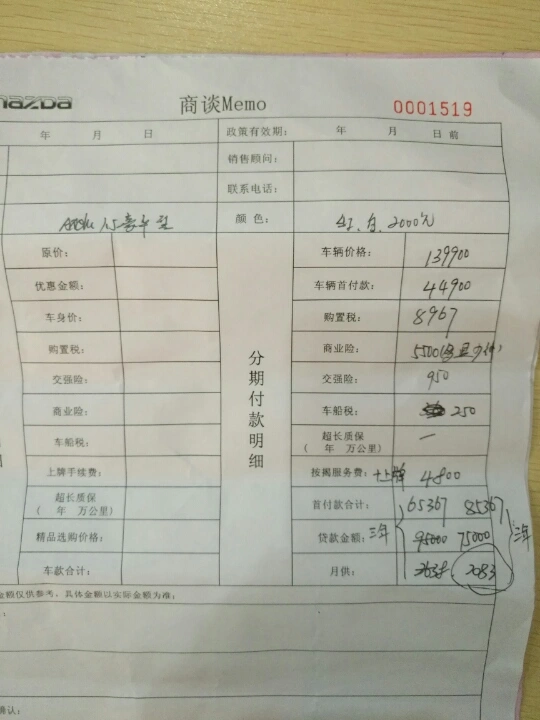 mazda 商谈Memo 0001519
年 月 日 政策有效期： 年 月 日前
销售顾问：
联系电话：
颜 色： 红、白、2000元
原价： 车辆价格： 139900
优惠金额： 车辆首付款： 44900
车身价： 购置税： 8967
购置税： 商业险： 5500
交强险： 交强险： 950
商业险： 车船税： 250
车船税： 超长质保 —
（ 年 万公里）
上牌手续费： 按揭服务费： +上牌 4800
超长质保 首付款合计： 65367 85367
（ 年 万公里）
精品选购价格： 贷款金额： 三年 95000 75000 三年
车款合计： 月供： 2638 2083
分期付款明细
金额仅供参考，具体金额以实际金额为准；